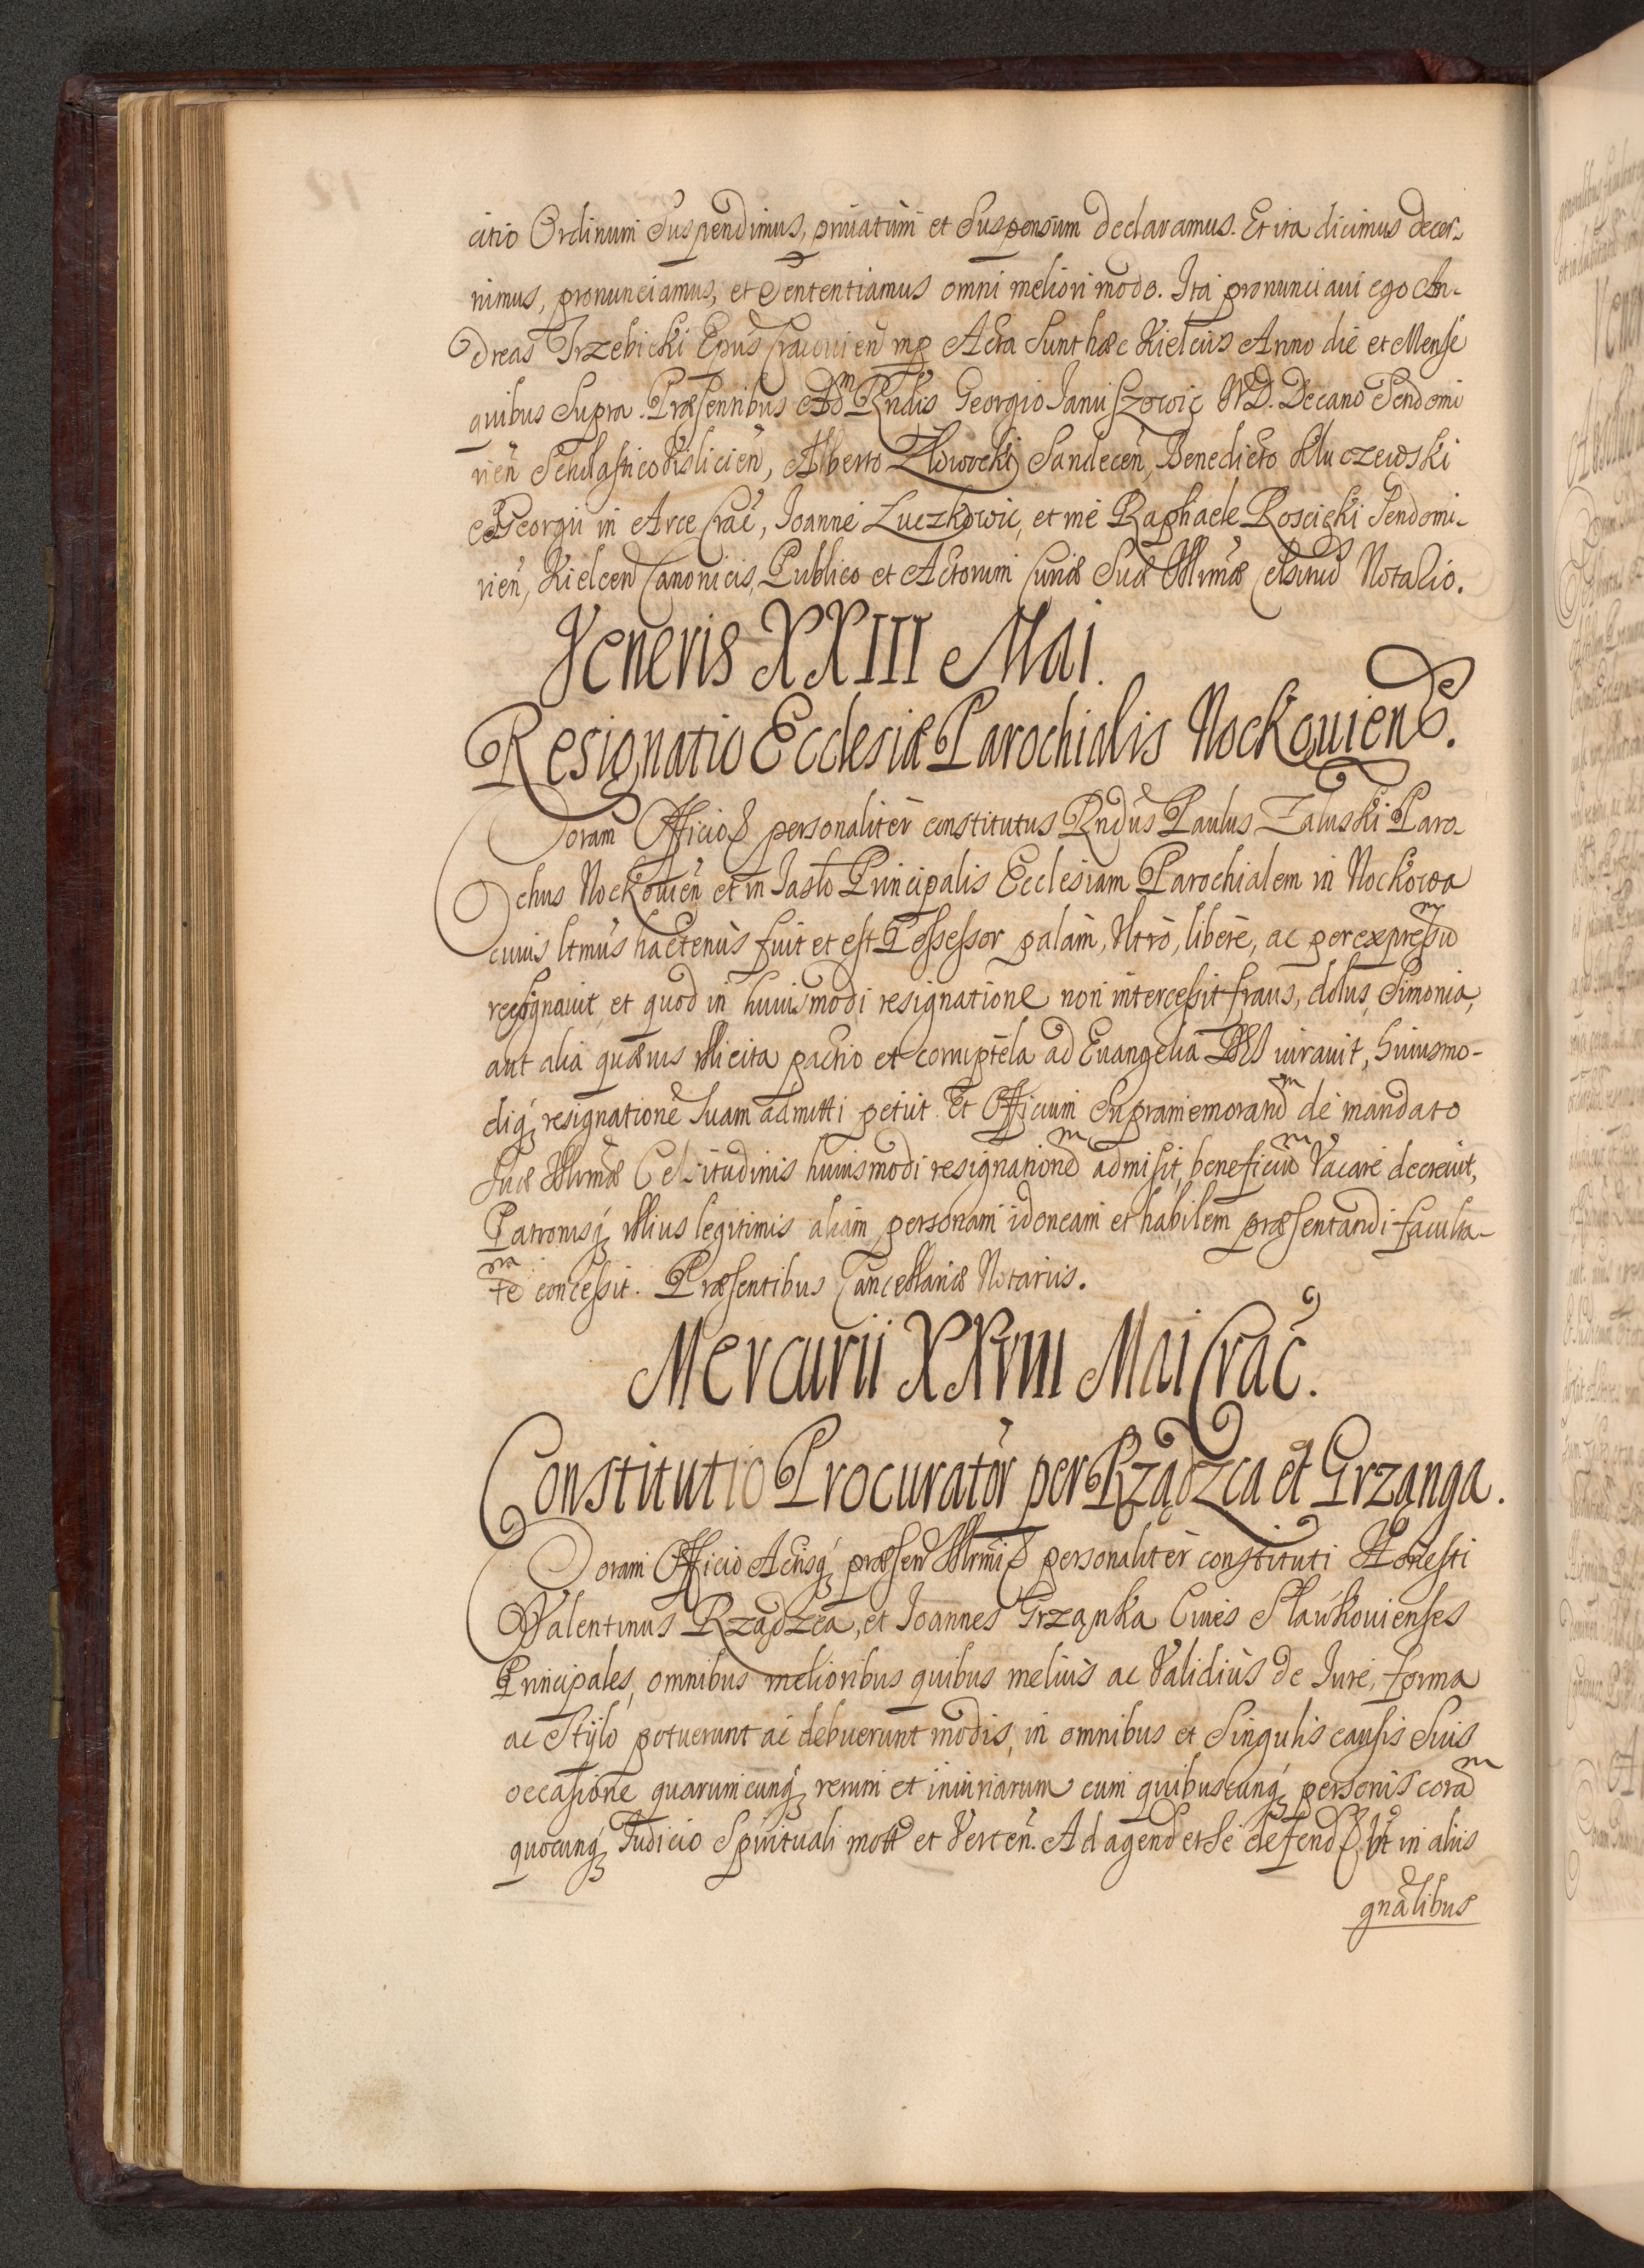 citio Ordinum Suspendimus, priuatum et Suspensum declaramus. Et ita dicimus decer-
nimus, pronunciamus, et Sententiamus omni meliori modo. Ita pronunciaui ego An-
dreas Trzebicki Epus Cracouien mp Acta Sunt hæc Kielciis Anno die et Mense
quibus Supra. Præsentibus Adm Rndis Georgio Januszowic NVD. Decano Sendomi
rien Scholastico Vislicien, Alberto Sandecen, Benedicto Kluczewski
S Georgii in Arce Crac, Joanne Luczkowic, et me Raphaele Roscicki Sendomi-
rien, Kielcen Canonicis, Publico et Actorum Curiæ Suæ Illrmæ Celsitud Notario.
Veneris XXIII Mai.
Resignatio Ecclesiæ Parochialis Nockouiens.
Coram Officio & personaliter constitutus Rndus Paulus Zaluski Paro
chus Nockouien et in Jasło Principalis Ecclesiam Parochialem in Nockowa
cuius ltmus hactenus fuit et est Possessor palam, Vltro, libere, ac per expressum
resignauit, et quod in huiusmodi resignatione non intercessit fraus, dolus, Simonia,
aut alia quæuis illicita pactio et corruptela ad Euangelia iurauit, huiusmo-
diq resignatione Suam admitti petiit. Et Officium Supramemorand de mandato
Suæ Illrmæ Celsitudinis huiusmodi resignationem admisit, beneficium Vacare decreuit,
Patronisq illius legitimis aliam personam idoneam et habilem præsentandi faculta-
tem concessit. Præsentibus Cancellariæ Notariis.
Mercurii XXVIII Mai Crac.
Constitutio Procurator per Rządzca et Grzanga.
Coram Officio Actisq præsen Illrmi & personaliter constituti Honesti
Valentinus Rządzca, et Joannes Grząnka Ciues Slawkouienses
Principales, omnibus melioribus quibus melius ac Validius de Jure, forma
ac Stylo potuerunt ac debuerunt modis, in omnibus et Singulis causis Suis
occasione quarumcunq rerum et iniuriarum cum quibuscunq personis coram
quocunq Judicio Spirituali mott et Verten. Ad agend et Se defend & Vt in aliis
gnalibus